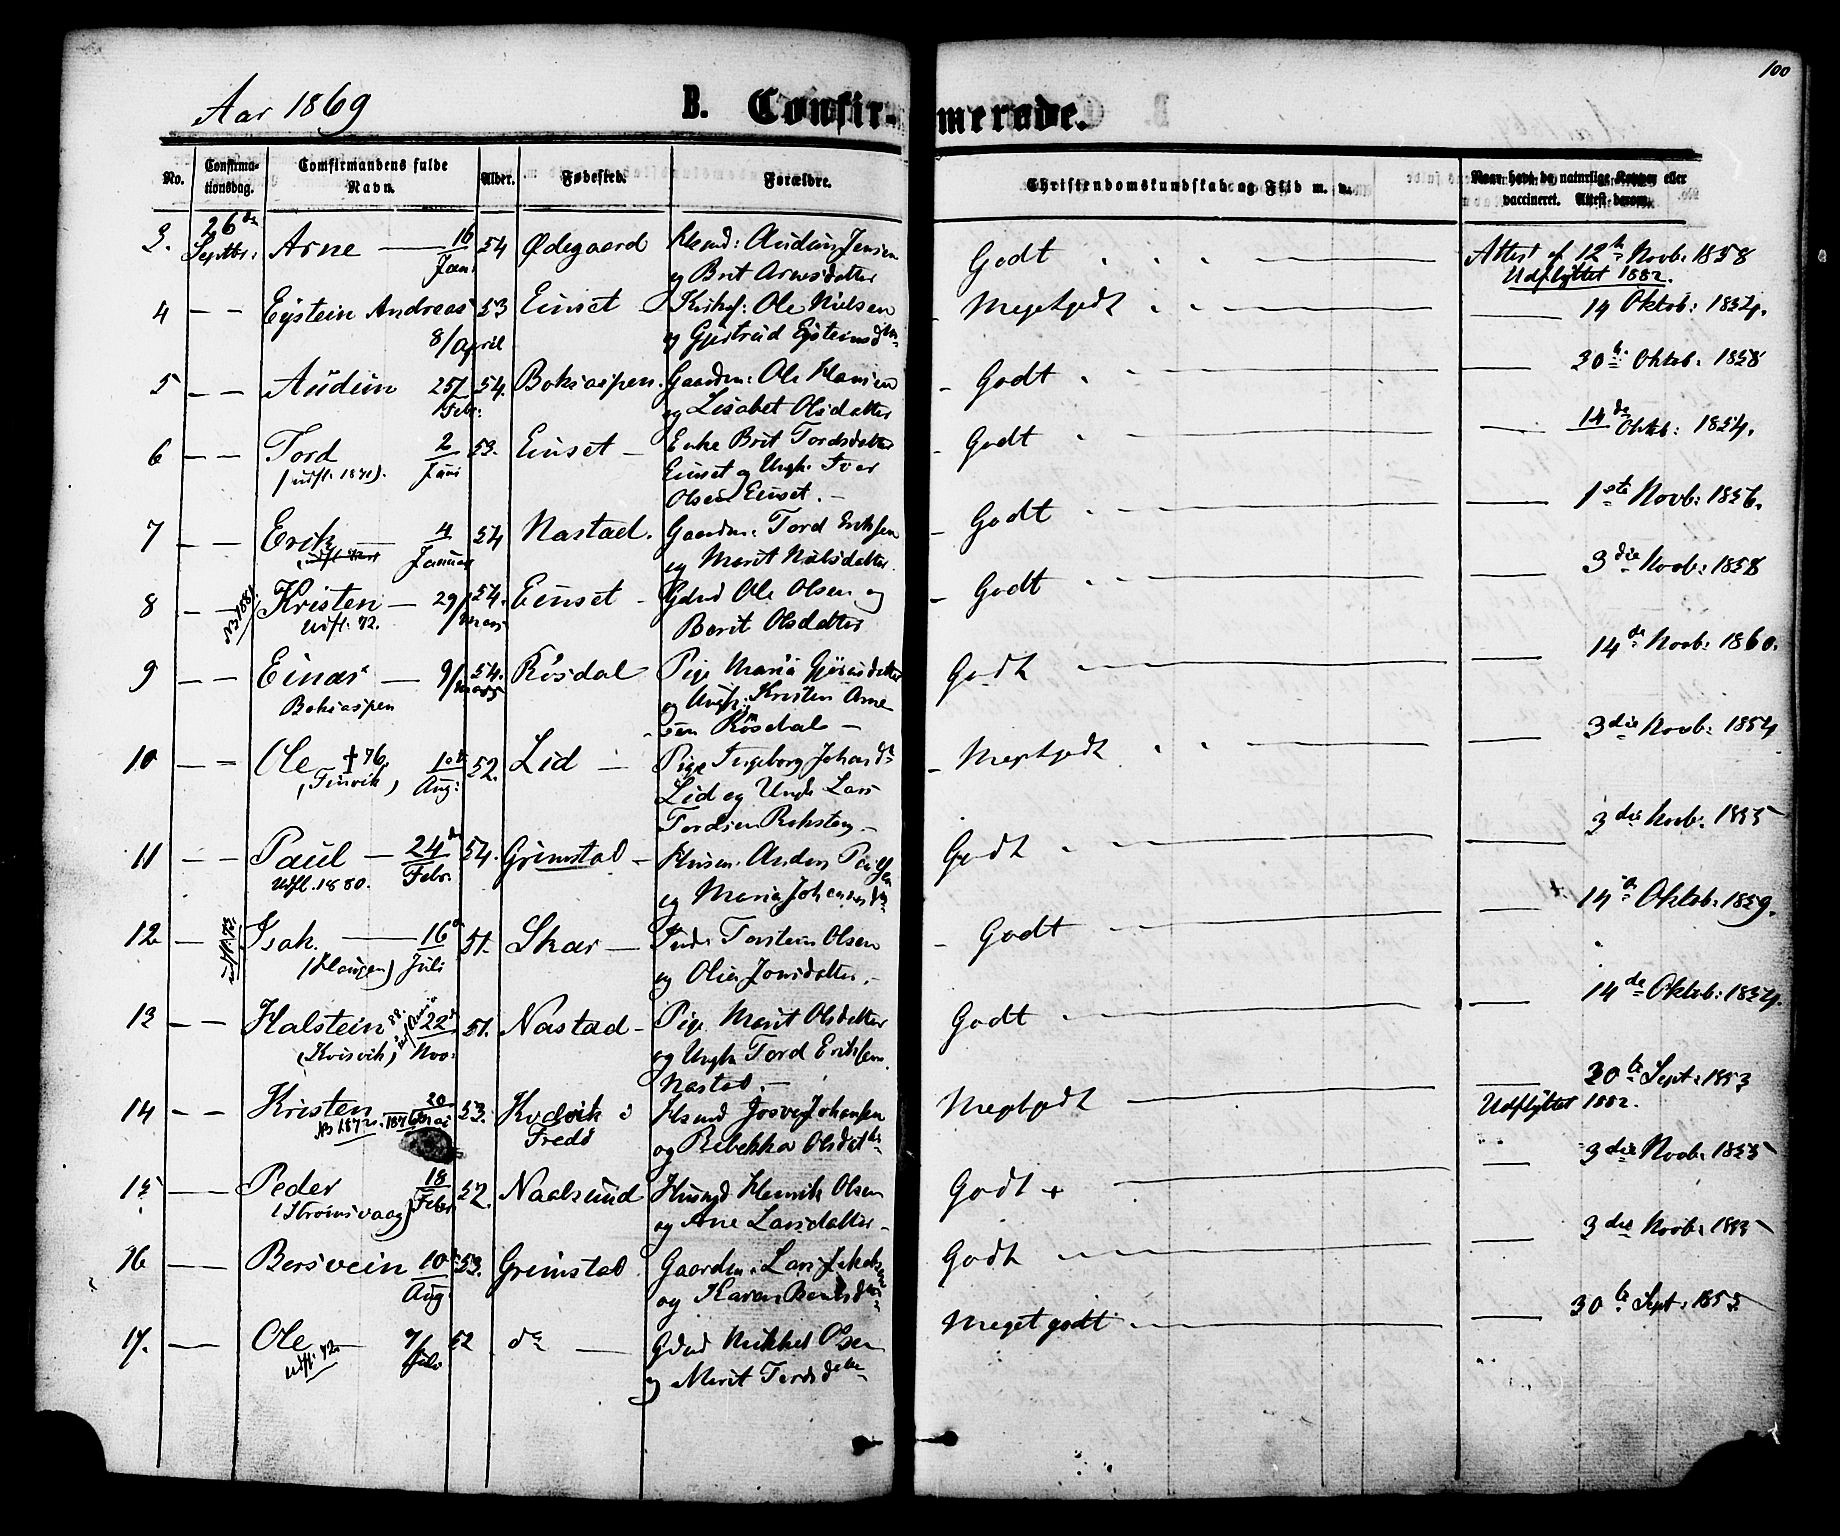 100
Aar 1869 B. Confir- merede.
No. Confirma- tionsdag. Comfirmandens fulde Navn. Alder. Fødested. Forældre. Christendomskundskab og Flid m. v. Naar havt de naturlige Kopper eller vaccineret. Attest derom.
3. 26de Septbr: Arne — 16 Jan: 54 Ødegaard Husmd: Audun Jensen Godt Attest af 12te Novb: 1858
og Brit Arnesdatter Udflyttet 1882.
4 — — Eystein Andreas 53 Einset Kirkes: Ole Nielsen Megetgodt — 14 Oktob: 1854.
8/April og Gjertrud Eysteinsdtr
5 — — Audun 25/Febr: 54. Boksaspen. Gaardm: Ole Hansen Godt — 30te Oktob: 1858
og Lisabet Olsdatter
6 — — Tord 2 Juni 53. Einset — Enke Brit Tordsdatter Godt — 14de Oktob: 1854.
(udfl. 1871). Einset og Ungk: Iver
Olsen Einset. —
7 — — Erik 4 Januar 54 Nastad. Gaardm: Tord Eriksen Godt — 1ste Novb: 1856.
og Marit Nilsdatter
8 — — Kristen — 29/Mars 54. Einset — Gdmd Ole Olsen og Godt — 3die Novb: 1858
Udfl: 72. Berit Olsdatter
9 — — Einar — 9/Mars 54. Rösdal Pige Maria Gjörasdatter Godt — 14de Novb: 1860.
Boksaspen og Ungk: Kristen Arne-
sen Rösdal —
10 — — Ole † 76, 1ste Aug: 52. Lid — Pige Ingeborg Johansdtr Megetgodt — 3die Novb: 1854
(Finvik) Lid og Ungk Lars
Tordsen Boksten —
11 — — Paul — 24de Febr: 54. Grimstad — Husm. Anders Paulsen Godt — 3die Novb: 1855
Udfl. 1880. og Maria Johannesdtr
12 — Isak. — 16de Juli 51. Skar — Torstein Olsen Godt — 14de Oktob: 1859.
(Haugen) og Olia Jonsdatter. —
13 — — Halstein 22de Nov: 51. Nastad — Pige Marit Olsdatter Godt — 14de Oktob: 1854.
(Kvisvik) og Ungk Tord Eriksen
Nastad. —
14 — — Kristen 20 53. Kvalvik i Husmd Josva Johansen Megetgodt — 30te Sept: 1853
Fredö og Rebekka Olsdatter Udflyttet 1882.
15 — — Peder 18 Febr 52. Naalsund Husmd Henrik Olsen Godt + — 3die Novb: 1855
(Strömsvaag) og Ane Larsdatter —
16 — — Bersvein 10de Aug: 53. Grimstad Gaardm: Lars Jakobsen Godt — 3die Novb: 1855
og Karen Berntsdtr
17. — Ole — 7/Juli 52 do — Gdmd Mikkel Olsen Meget godt — 30te Sept: 1853
udfl: 72. og Marit Tordsdatter